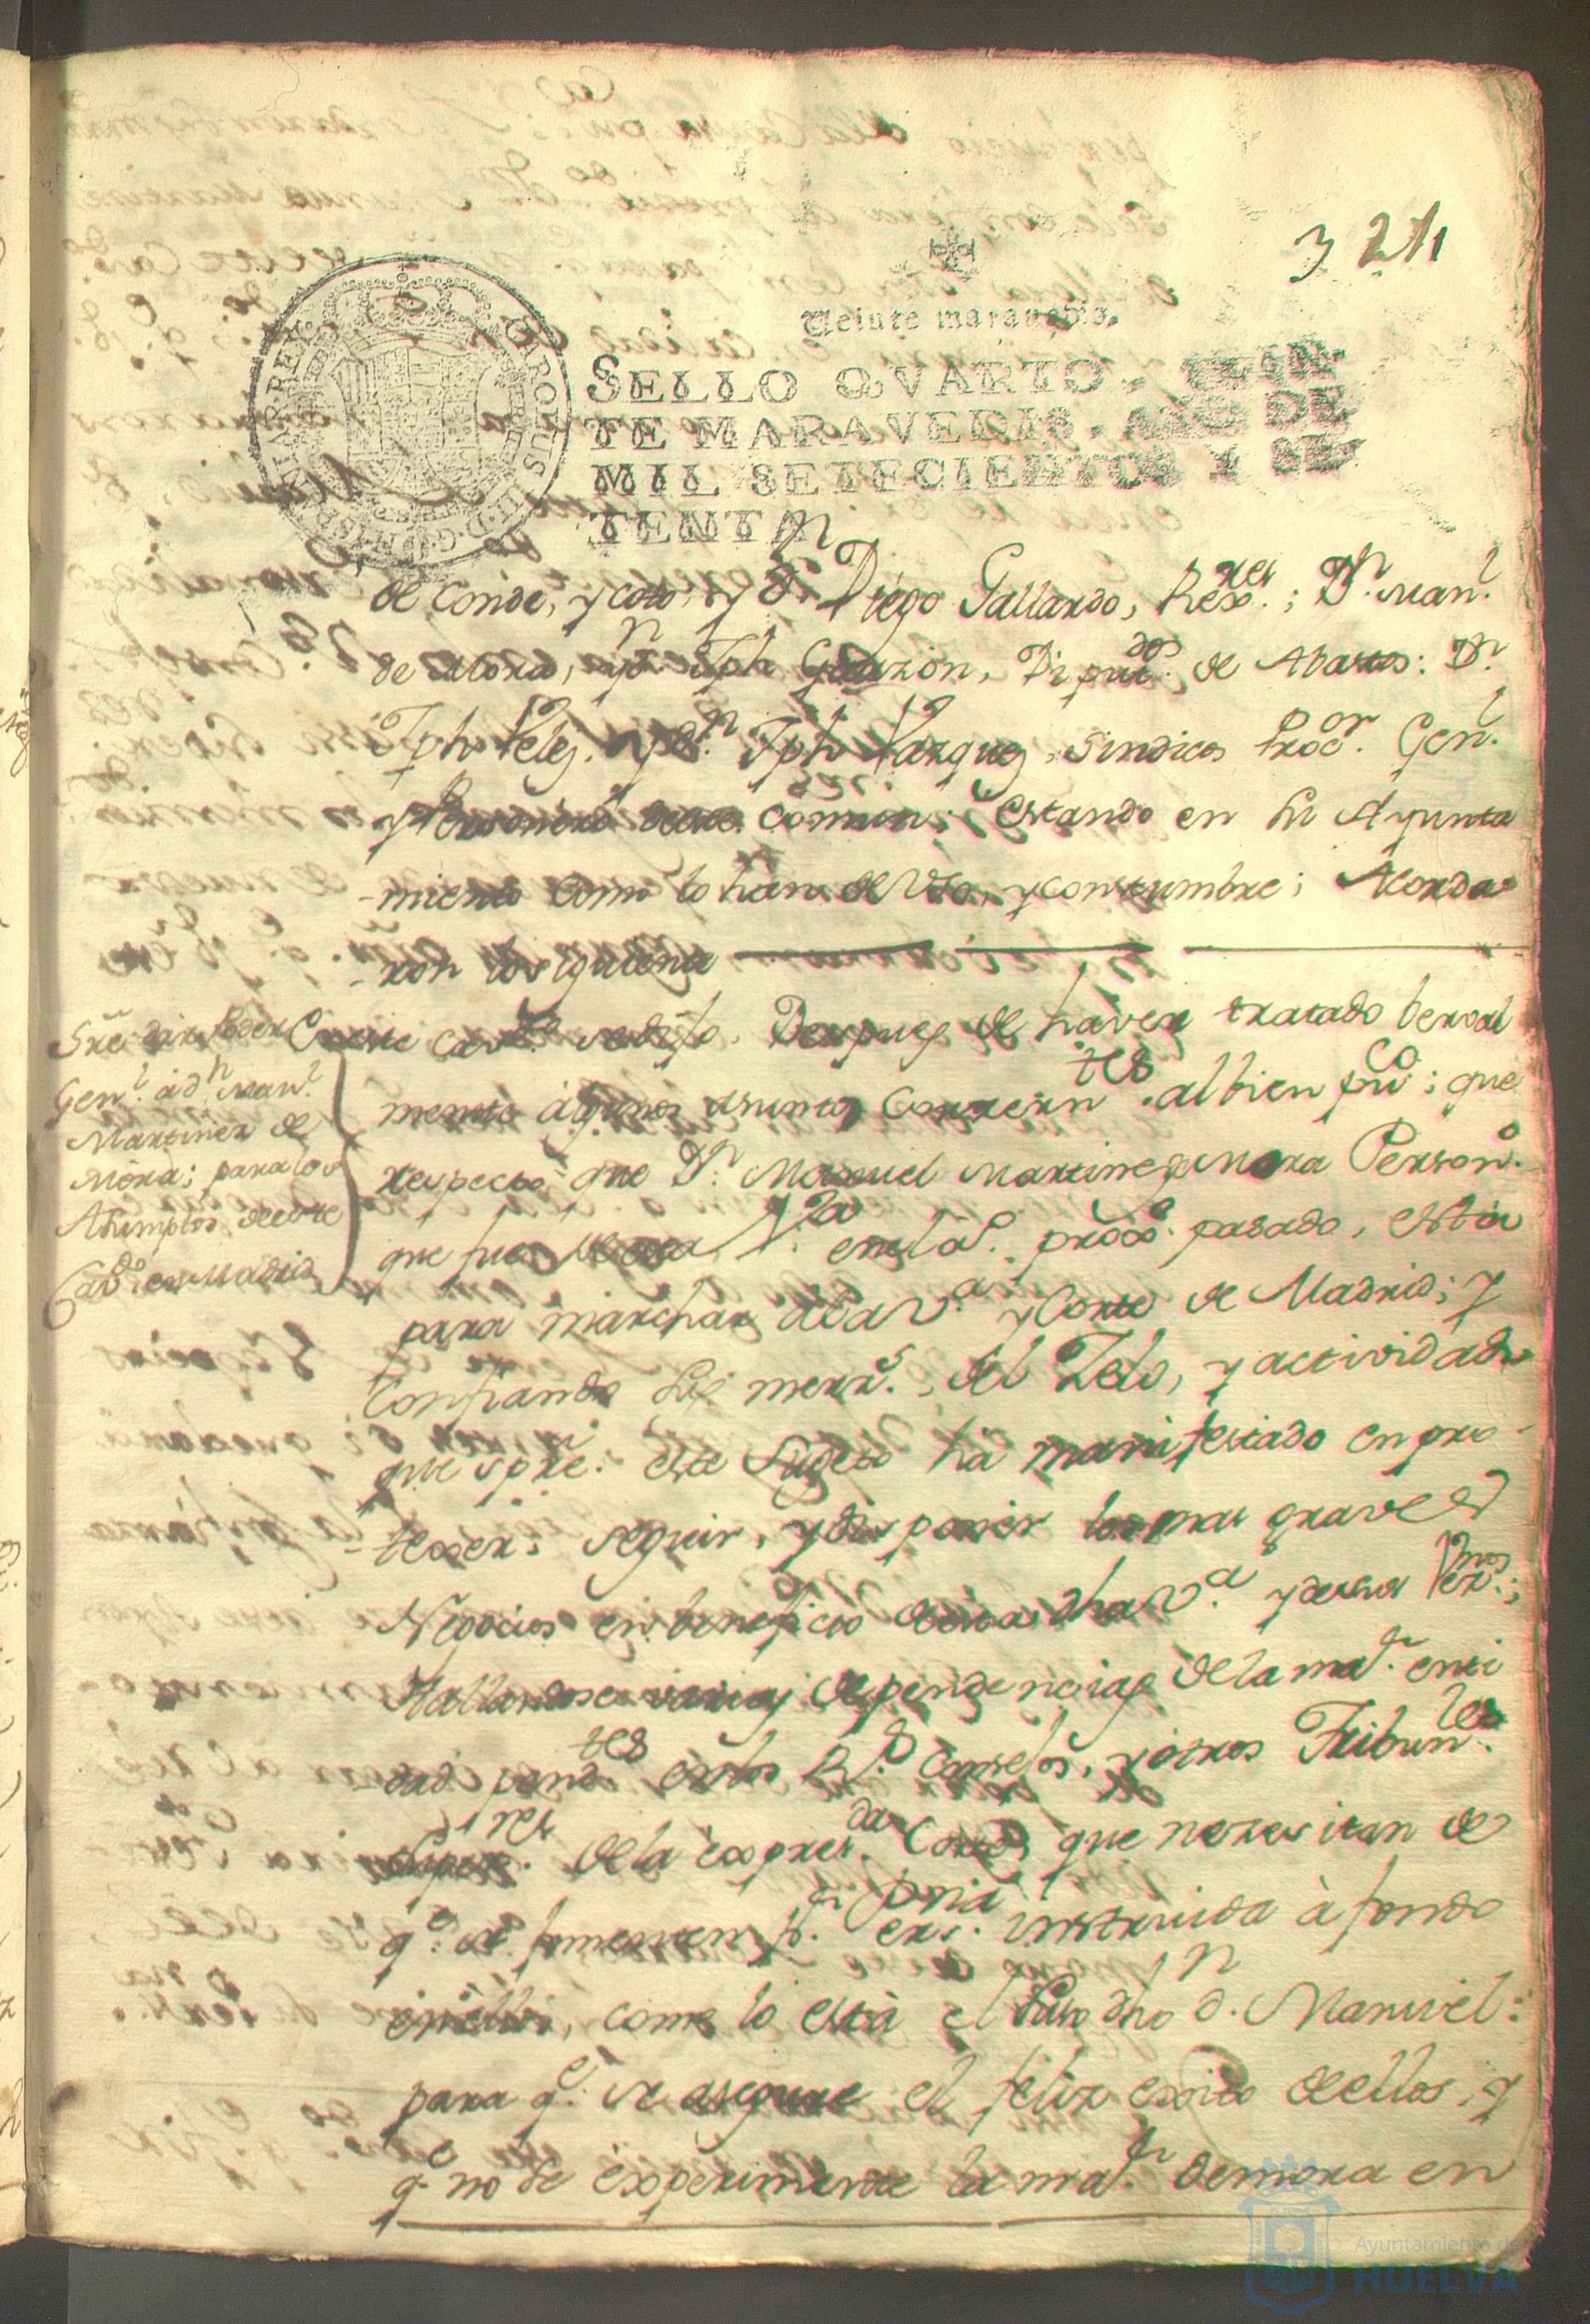 324
Veinte maravedis.
SELLO QVARTO, VEIN
TE MARAVEDIS, AÑO DE
MIL SETECIENTOS Y SE
TENTA
CAROLUS III D G HISPANIAR REX
de Conde, y coto, y Dn. Diego Gallardo, Rexres.; Dn. Manl.
de Mora, y dn. Jph Garzon, Diputdos. de Abastos: Dn.
Jph Velez. y dn. Jph Vazquez, Sindicos Procor. Genl.
y Personero deste Comun; estando en su Ayunta
-miento como lo han de Uso, y constumbre; Acorda
-ron lo siguiente
Sre. dar Poder
Genl. a dn. Manl.
Martinez de
Mora; para los
Asumptos deeste
Cavdo. en Madrid
Eneste Cavdo. se dijo, Despues de haver tratado berval
mente algunos asuntos Correspntes. al bien puco.; que
respecto que Dn. Manuel Martinez Mora Persono.
que fue de esta Va. enel ao. proxo. pasado, està
para marchar ala Va. y Corte de Madrid; y
Confiando sus mercs., del Zelo, y actividad
que spre. este Sugeto ha manifestado en pro
-texer, seguir, y disponer los mas graves
Negocios en beneficio deesta dha Va. y desus Vexnos.;
Hallandose varias dependencias dela maor. enti
-dad pendtes. enlos Rs. Consejos, y otros Tribunles.
Superes. dela expresda. Corte, que necesitan de
qe. se fomenten pr. Persna. instruida à fondo
enellos, como lo està el susodho dn. Manuel:
para qe. se asegure el feliz exito deellos, y
qe no se experimente la maor. demora en
Ayuntamiento de
HUELVA